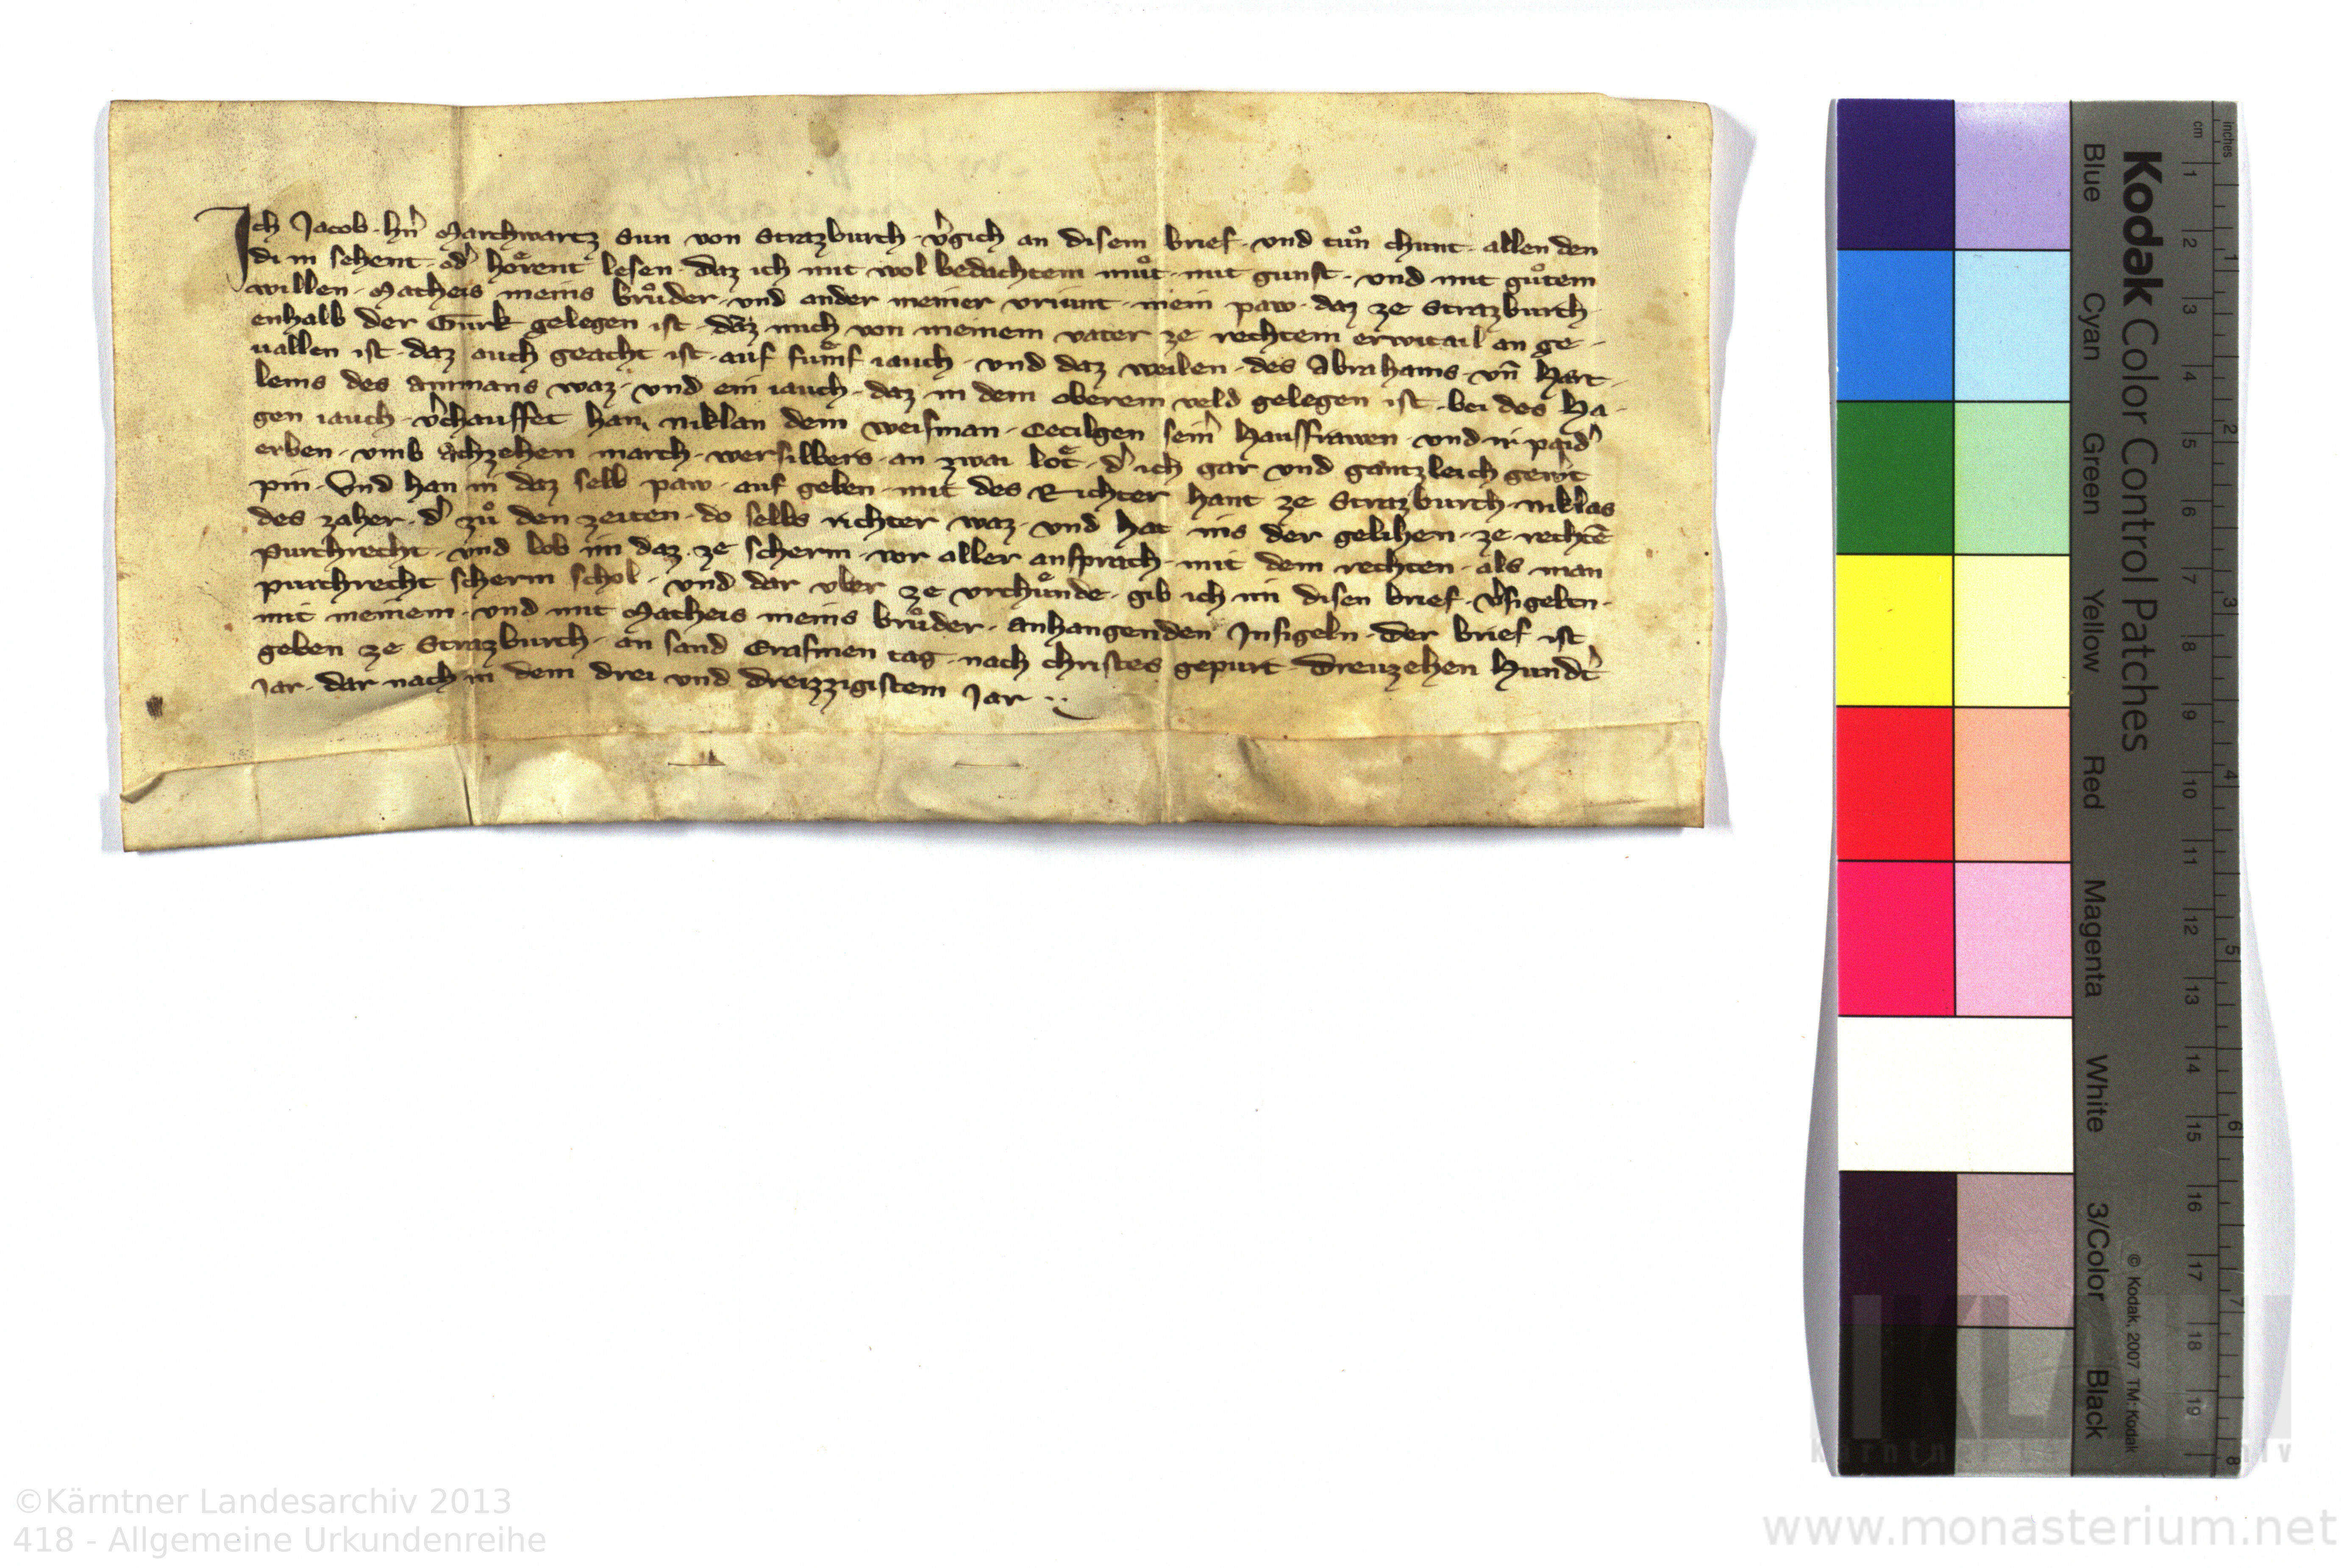 Ich Jacob · hn̄ Marchwartz sun von Strazburch · v̾gich an disem brief · vnd tuͦn chunt · allen den
di in sehent · od̾ hoͤrent lesen · daz ich mit wol bedachtem muͦt · mit gunst · vnd mit guͦtem
willen · Matheis meins bruͦder · vnd ander meiner vriunt · mein paw · daz ze Strazburch ·
enhalb der Gurk gelegen ist · daz mich von meinem vater ze rechtem erwitail an ge-
uallen ist · daz auch geacht ist · auf fuͤmf iauch · vnd daz weilen · des Abrahams · vn̄ Hart-
leins des ammans waz · vnd ein iauch · daz in dem oberem veld gelegen ist · bei des Ha-
gen iauch · v̾chauffet han · niklan dem weisman · Cecilgen sein̾ Hausfrawen · vnd ir paid̾
erben · vmb achzehen march · wersilbers · an zwai loͤt · d̾ ich gar vnd gantzleich gew̾t
pin · Vnd han in daz selb paw · auf geben · mit des Richter hant ze Strazburch · niklas
des zaher · d̾ zuͦ den zeiten · do selbs richter waz · vnd hat ins der gelihen · ze rechtē
purchrecht · vnd lob im daz · ze scherm · vor aller ansprach · mit dem rechten · als man
purchrecht scherm schol · vnd dar vber ze vrchuͤnde · gib ich im disen brief · v̾sigelten ·
mit meinem · vnd mit Matheis meins bruͦder · anhangenden Insigeln · Der brief ist
geben ze Strazburch · an sand Erasmen tag · nach christes gepurt · Dreuzehen Hundt̾
iar · dar nach in dem drei vnd Dreizzigistem Jar ··
Kodak Color Control Patches
Blue Cyan Green Yellow Red Magenta White 3/Color Black
© Kodak, 2007 TM: Kodak
cm 1 2 3 4 5 6 7 8 9 10 11 12 13 14 15 16 17 18 19
inches 1 2 3 4 5 6 7 8
©Kärntner Landesarchiv 2013
418 - Allgemeine Urkundenreihe
www.monasterium.net